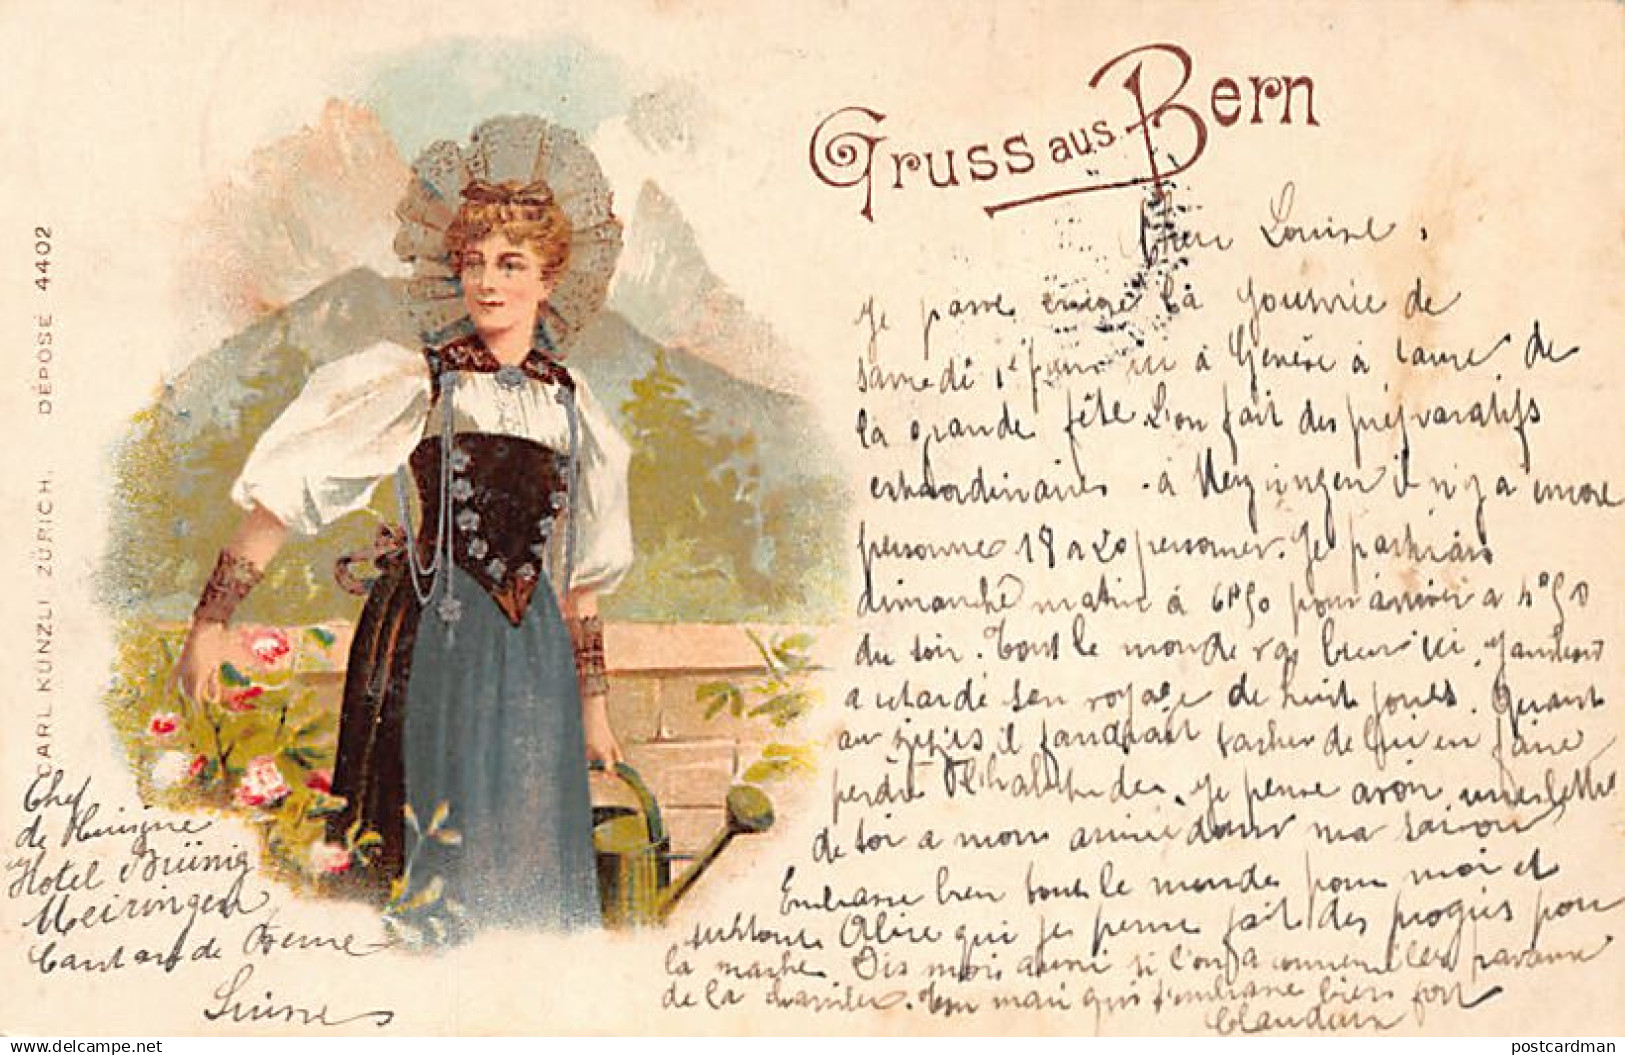 Gruss aus Bern
CARL KÜNZLI ZÜRICH. DÉPOSÉ 4402
Louise,
Je passe la de
samedi à Genève à cause de
la grande fête L'on fait des préparatifs
extraordinaires . à il n'y a encore
personne 18 a 20 personnes. Je
matin à 6h50 pour arriver a 4h50
du soir. Tout le monde va bien ici.
a retardé son voyage de huit jours. Quant
au il faudrait tacher de lui en faire
perdre l'habitude. Je pense avoir une lettre
de toi a mon dans ma saison
Embrasse bien tout le monde pour moi et
surtout Alice qui je pense fait des progrès pour
la marche. Dis moi aussi si l'on a les travaux
de la Ton mari qui t'embrasse bien fort
Claudius
Chef
de Cuisine
Hotel Brünig
Meiringen
Canton de Berne
Suisse
postcardman